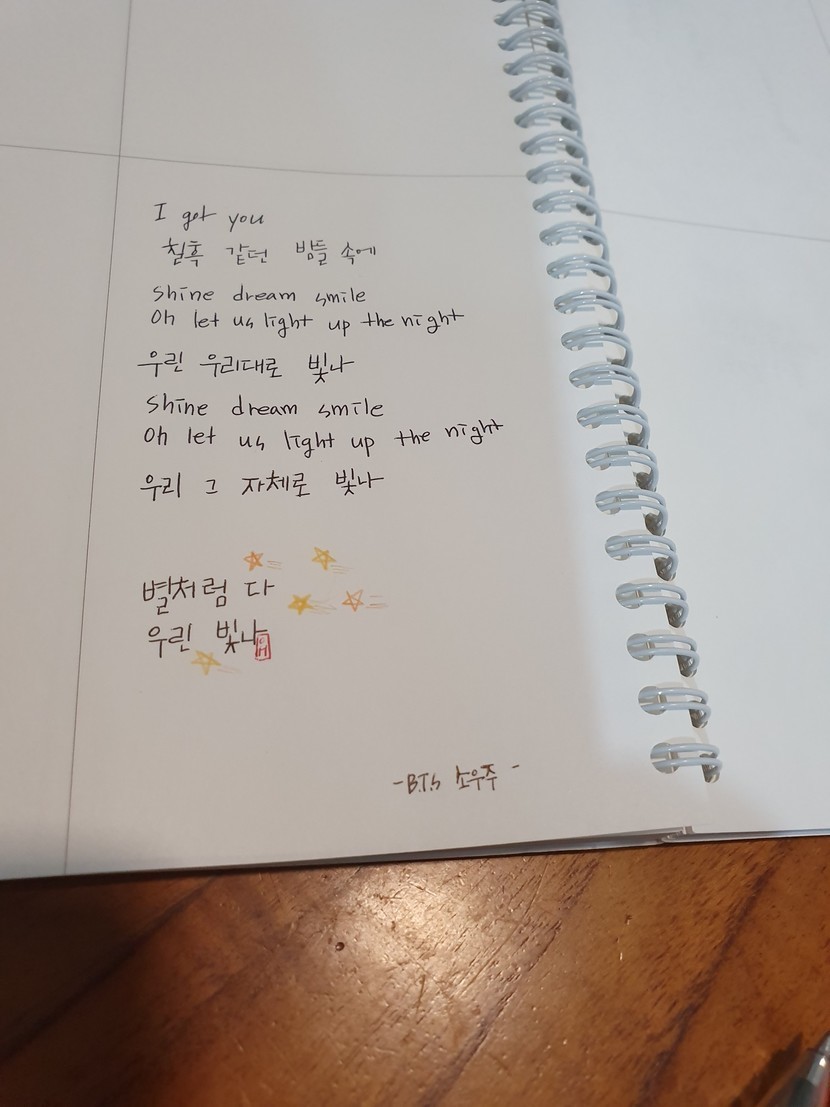 I got you
칠흑 같던 밤들 속에
shine dream smile
Oh let us light up the night
우린 우리대로 빛나
shine dream smile
Oh let us light up the night
우리 그 자체로 빛나
별처럼 다
우린 빛나
-BTS 소우주-